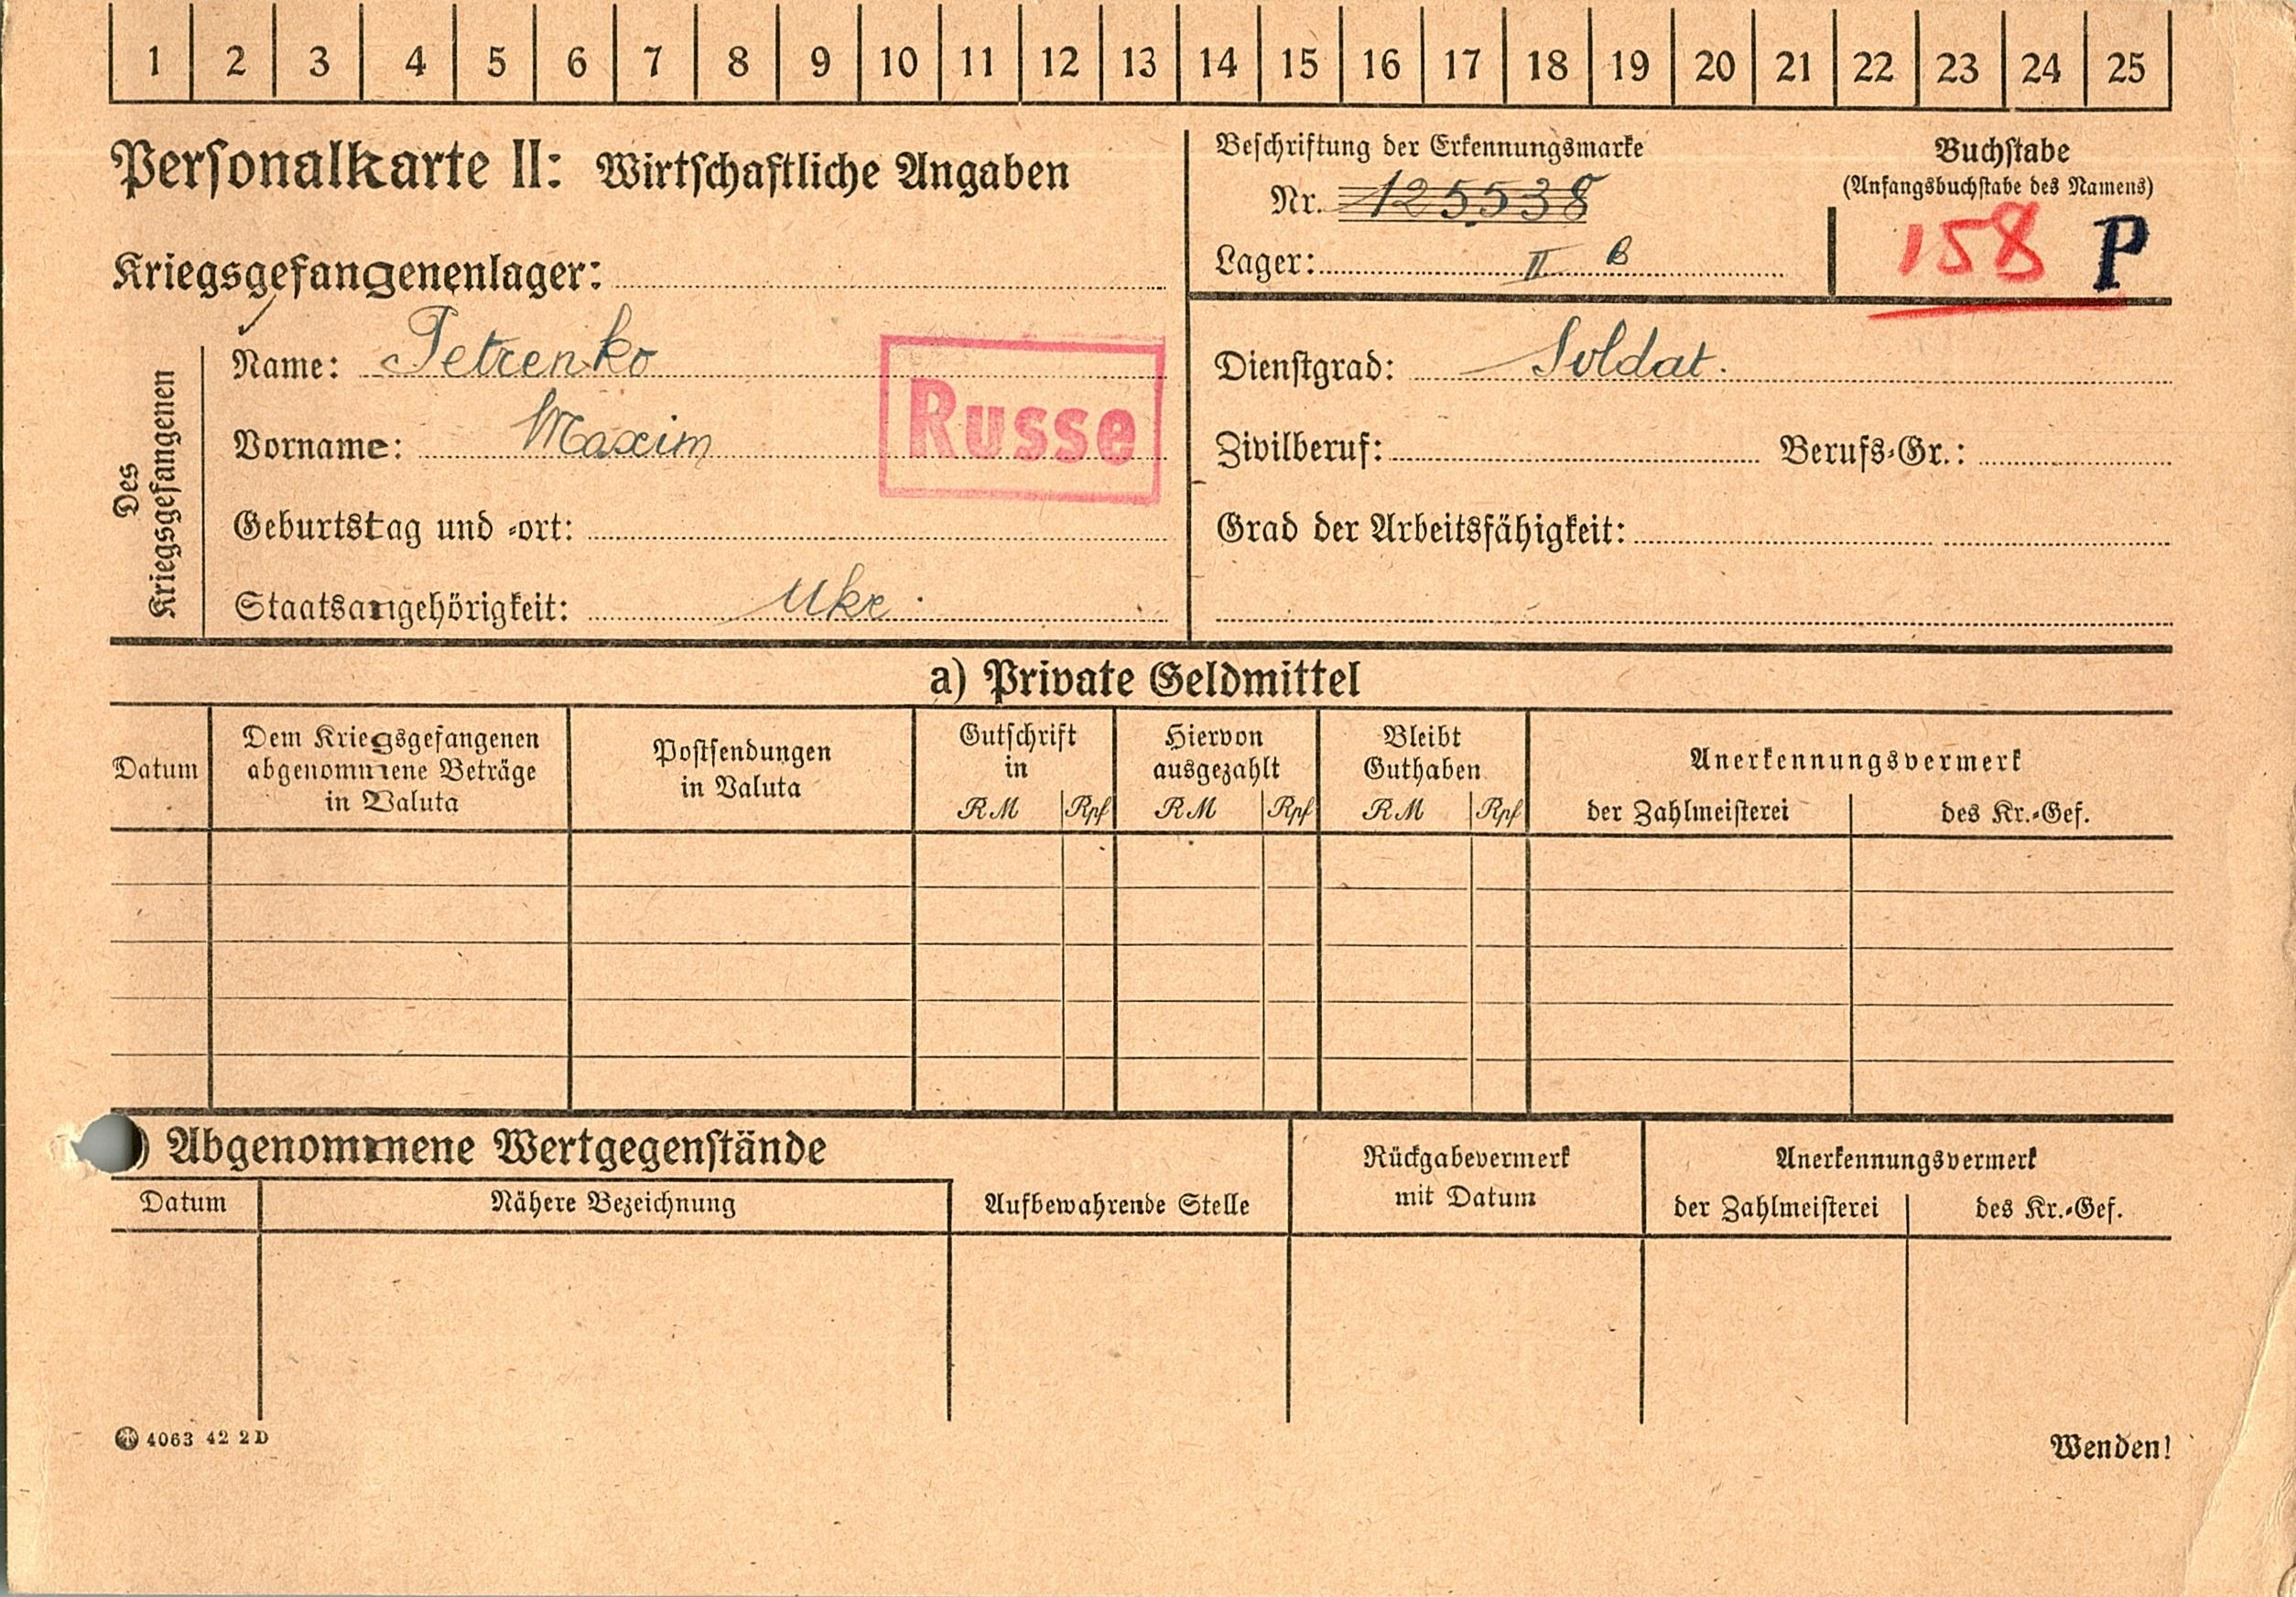 1 2 3 4 5 6 7 8 9 10 11 12 13 14 15 16 17 18 19 20 21 22 23 24 25
Personalkarte II: Wirtschaftliche Angaben
Kriegsgefangenenlager:
Beschriftung der Erkennungsmarke
Nr. 125538
Lager: II B
Buchstabe
(Anfangsbuchstabe des Namens)
158 P
Des
Kriegsgefangenen
Name: Petrenko
Vorname: Maxim
Russe
Geburtstag und -ort:
Staatsangehörigkeit: Ukr.
Dienstgrad: Soldat.
Zivilberuf: Berufs-Gr.:
Grad der Arbeitsfähigkeit:
a) Private Geldmittel
Datum
Dem Kriegsgefangenen
abgenommene Beträge
in Valuta
Postsendungen
in Valuta
Gutschrift
in
RM Rpf
Hiervon
ausgezahlt
RM Rpf
Bleibt
Guthaben
RM Rpf
Anerkennungsvermerk
der Zahlmeisterei des Kr.-Gef.
) Abgenommene Wertgegenstände
Datum Nähere Bezeichnung
Aufbewahrende Stelle
Rückgabevermerk
mit Datum
Anerkennungsvermerk
der Zahlmeisterei des Kr.-Gef.
4063 42 2 D
Wenden!